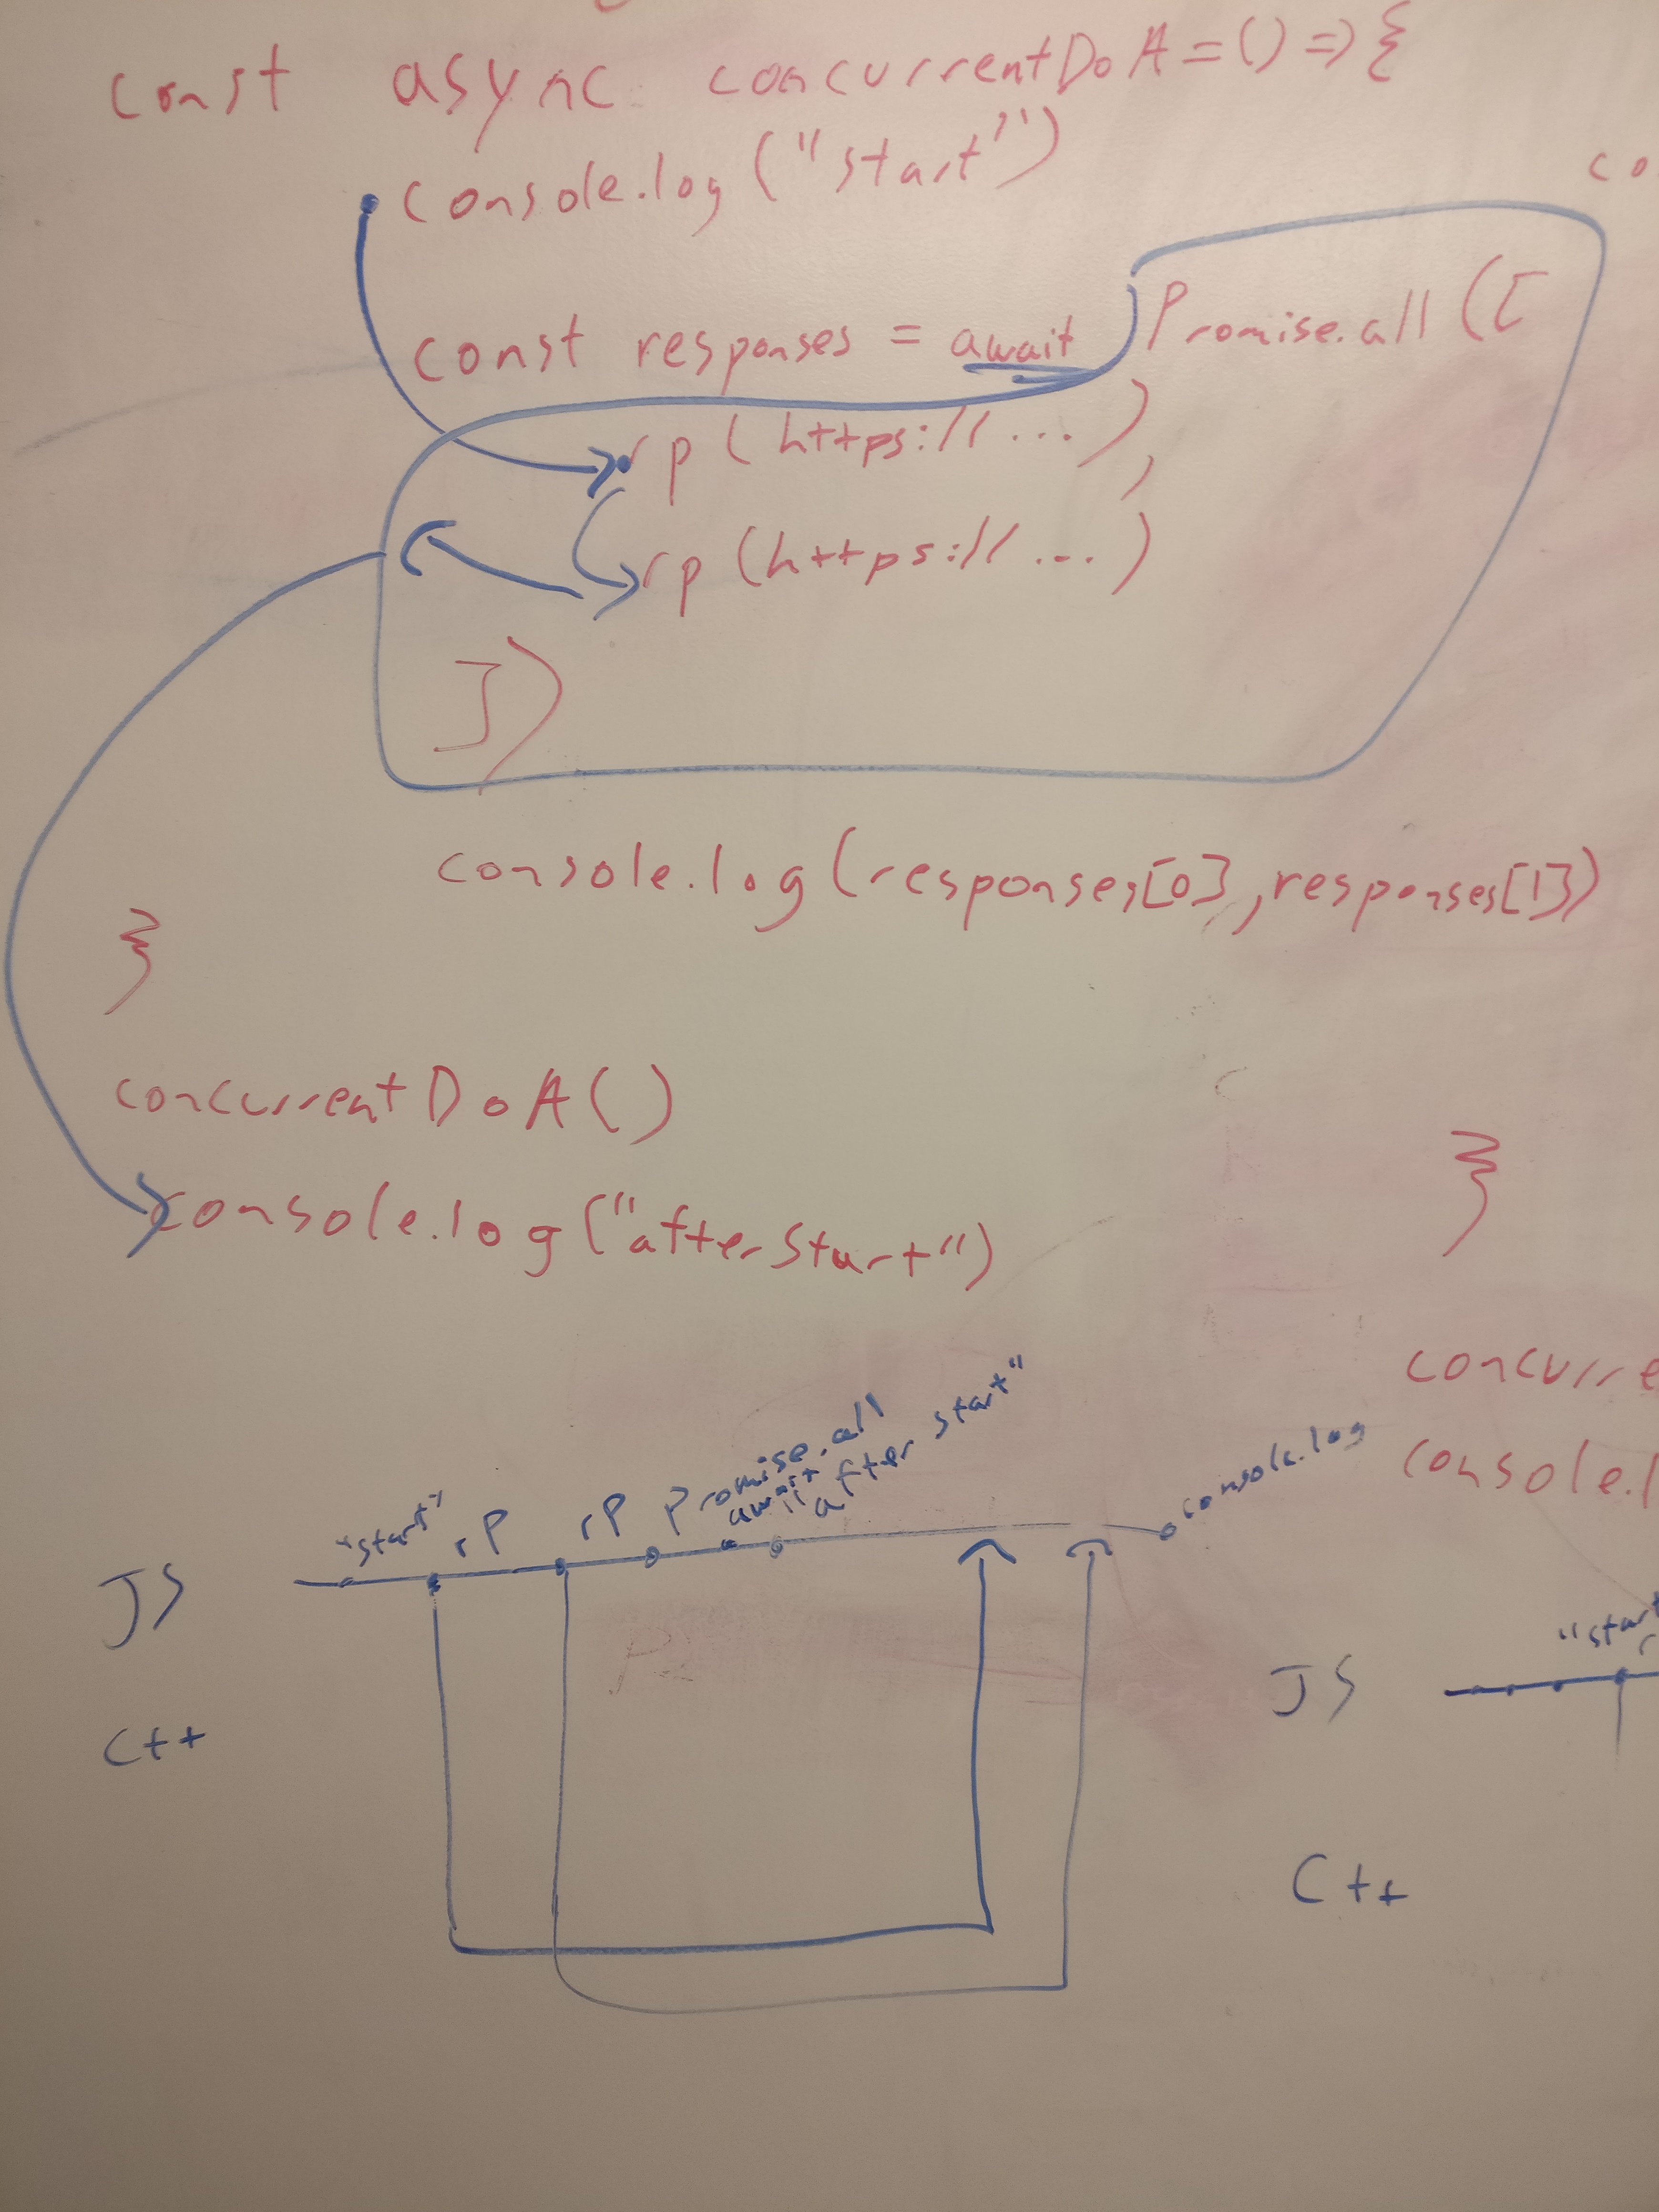 const async concurrentDoA = () => {
console.log("start")
co
const responses = await Promise.all([
rp(https://...),
rp(https://...)
])
console.log(responses[0], responses[1])
}
concurrentDoA()
}
console.log("after start")
concurre
console.l
"start" rp rp Promise.all await "after start" console.log
JS
C++
"start
r
JS
C++